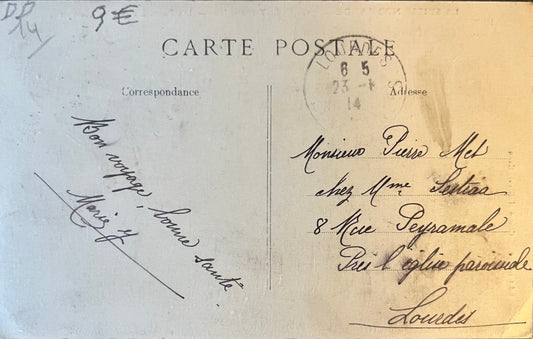 9 €
CARTE POSTALE
LOURDES
6 5
23 -
14
Correspondance
Adresse
Bon voyage, bonne santé.
Marie y
Monsieur Pierre Met
chez Mme Sestiaa
8 Rue Peyramale
Près l'église paroissiale
Lourdes